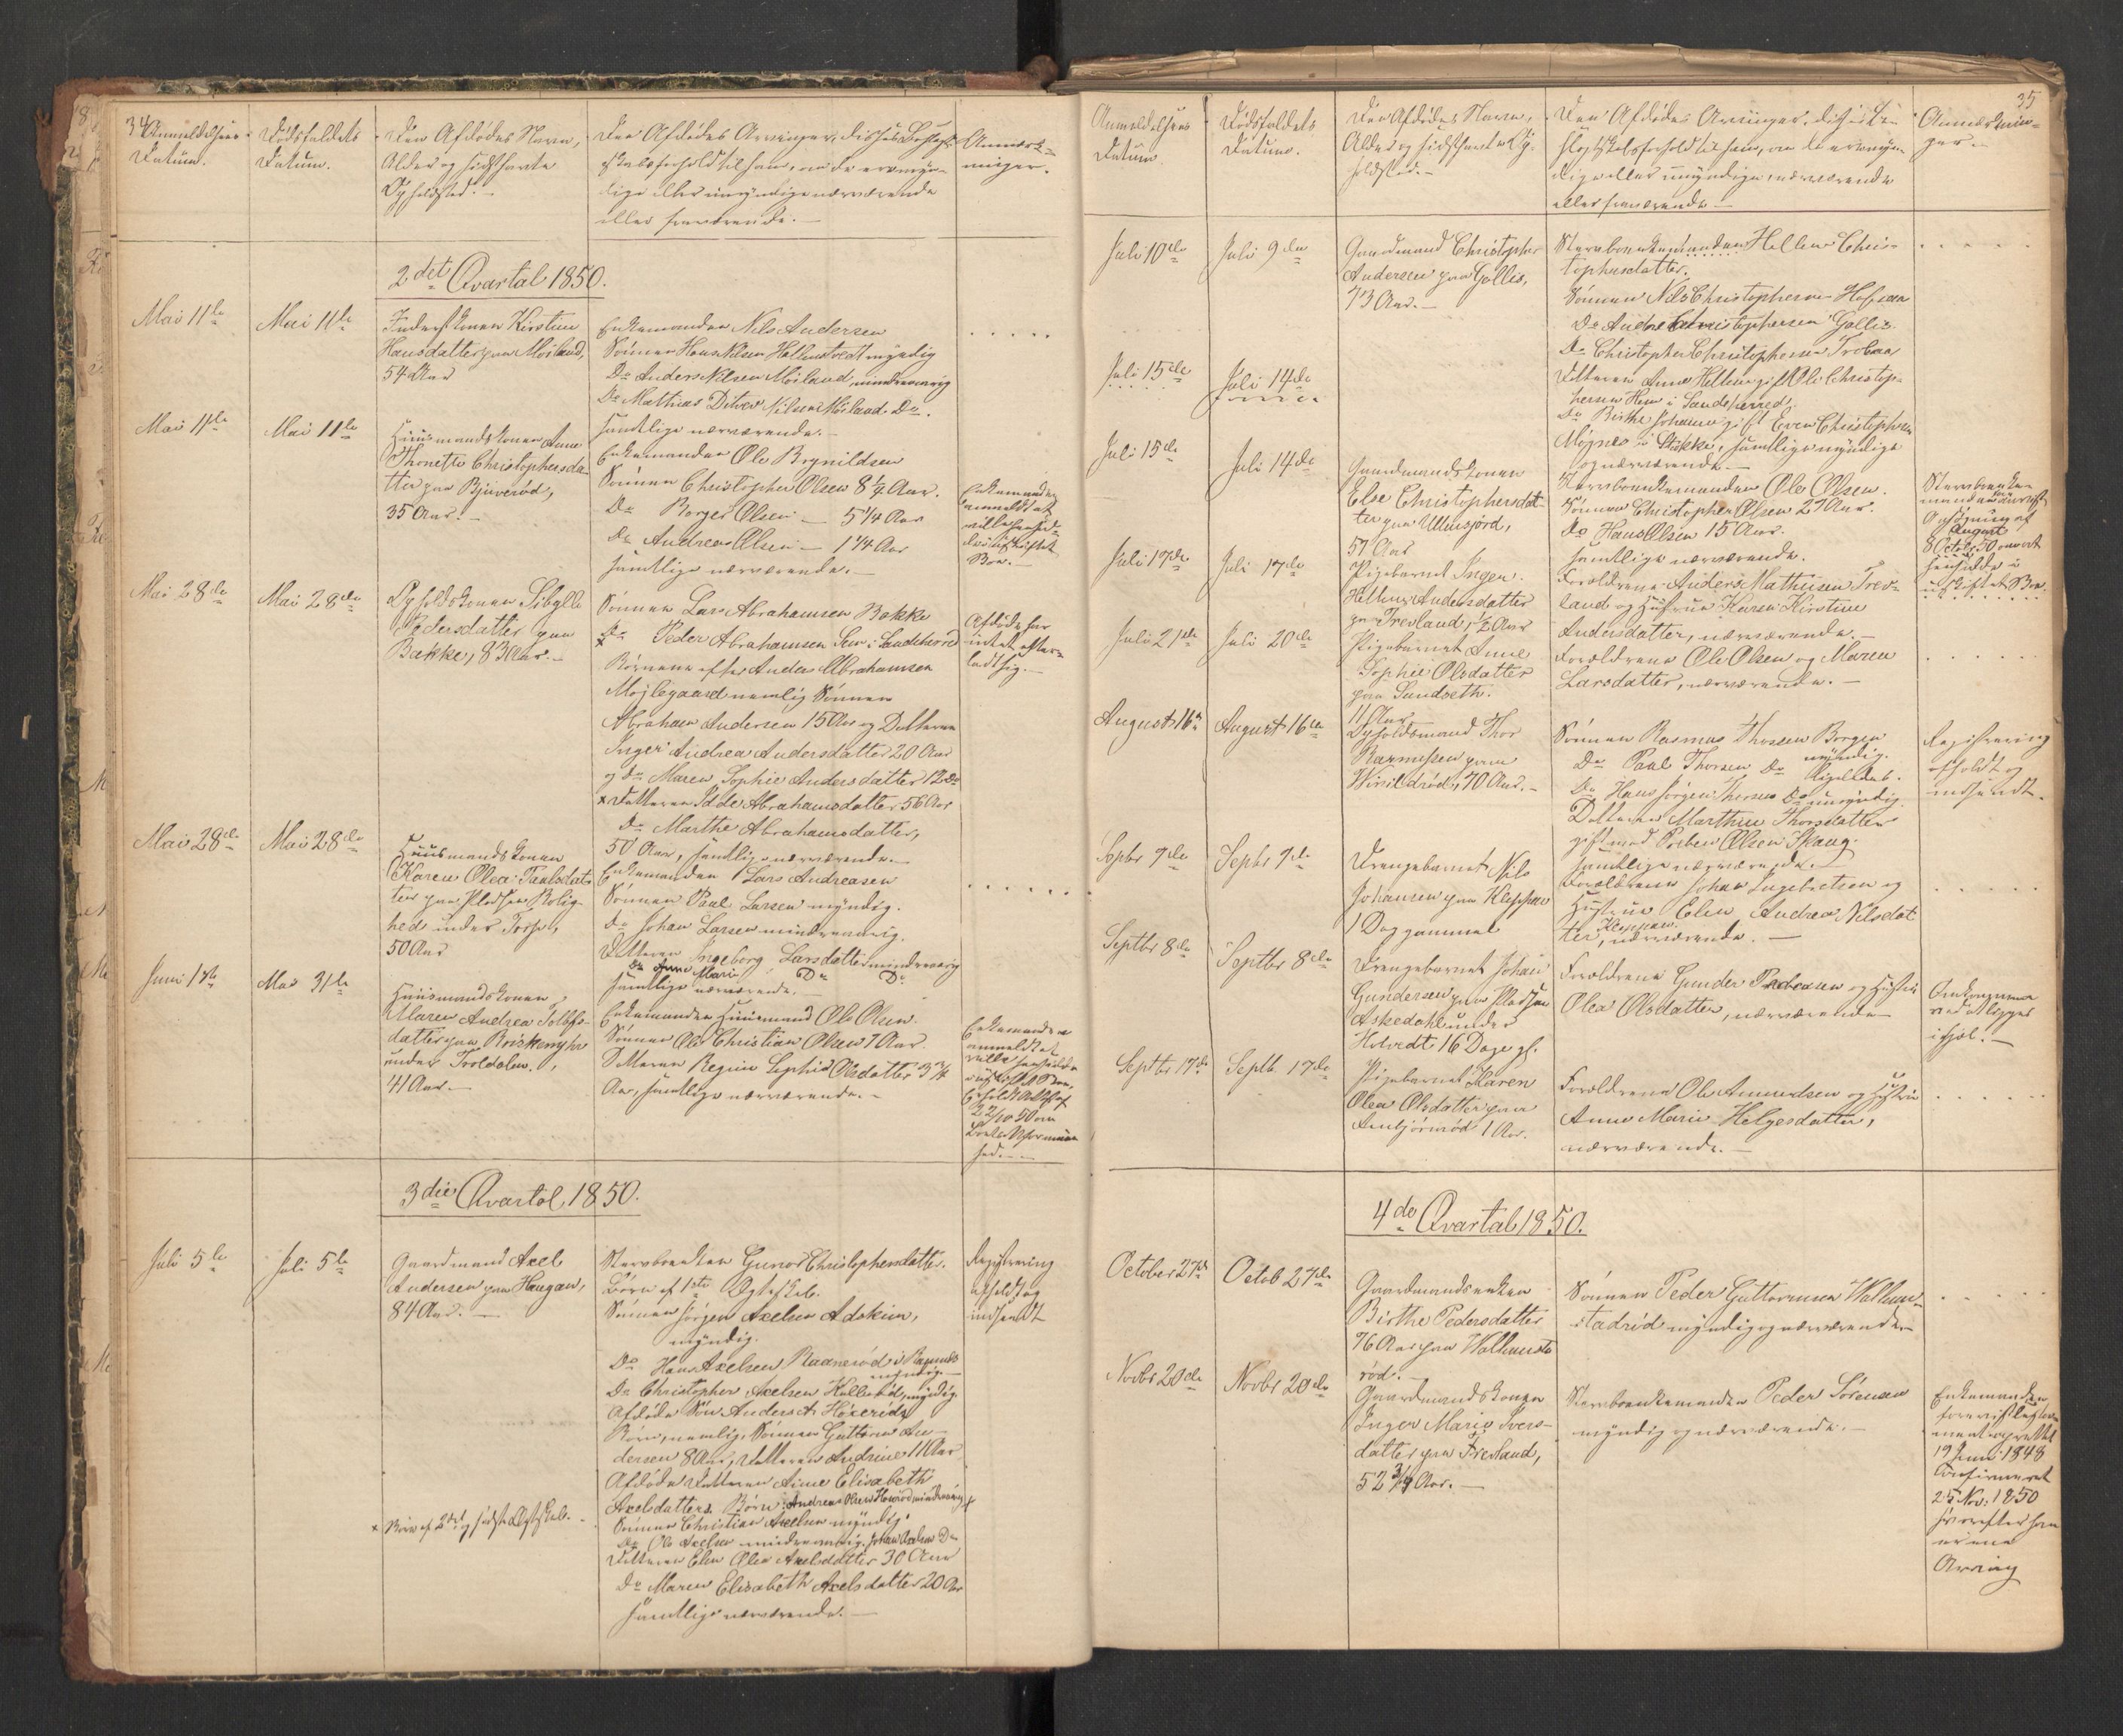 34
Anmeldelsens
Datum.
Dødsfaldets
Datum.
Den Afdødes Navn,
Alder og sidsthavte
Opholdsted.
Den Afdødes Arvinger, disses Slægt-
skabsforhold til ham, om de ere myn-
dige eller umyndige nærværende
eller fraværende.
Anmærk-
ninger.
2det Qvartal 1850.
Mai 11te
Mai 11te
Inderstkonen Kirstine
Hansdatter paa Moiland,
54 Aar
Enkemanden Nils Andersen
Sönnen Hans Nilsen Hellenstvedt myndig
Do Anders Nilsen Moiland mindreaarig
Do Mathias Nilsen Moiland Do.
samtlige nærværende.
Mai 11te
Mai 11te
Huusmandskonen Anne
Thonette Christophersda-
tter paa Bjuerød,
35 Aar.
Enkemanden Ole Brynildsen
Sönnen Christopher Olsen 8 1/4 Aar.
Do Borger Olsen 5 1/4 Aar
Do Andreas Olsen 1 1/4 Aar
samtlige nærværende.
Enkemanden
anmeldt at
ville hensid-
de i uskiftet
Boe.
Mai 28de
Mai 28de
Opholdskonen Sibylle
Pedersdatter paa
Bakke, 83 Aar.
Sönnen Lars Abrahamsen Bakke
Do Peder Abrahamsen Sem i Sandeherred
Börnene efter Anders Abrahamsen
Mojlegaard nemlig Sönnen
Abraham Andersen 15 Aar og Datteren
Inger Andrea Andersdatter 20 Aar
og do Maren Sophie Andersdatter 12 Do
x Datteren Idde Abrahamsdatter 56 Aar
Do Marthe Abrahamsdatter,
50 Aar, samtlige nærværende.
Afdøde har
intet efter-
ladt sig.
Mai 28de
Mai 28de
Huusmandskonen
Karen Olea Paulsdat-
ter paa Pladsen Rolig-
hed under Torp,
50 Aar
Enkemanden Lars Andreasen
Sönnen Paul Larsen myndig.
do Johan Larsen mindreaarig.
Datteren Ingeborg Larsdatter mindreaarig
Do Anne Marie Do Do
samtlige nærværende.
Juni 1ste
Mai 31te
Huusmandskonen
Maren Andrea Tollefs-
datter paa
under Troldalen,
41 Aar.
Enkemanden Huusmand Ole Olsen.
Sönnen Ole Christian Olsen 7 Aar.
Datteren Regine Sophie Olsdatter 3 3/4
Aar, samtlige nærværende.
Enkemanden
anmeldt at
ville hensidde
i uskiftet Boe.
3die Qvartal 1850.
Juli 5te
Juli 5te
Gaardmand Axel
Andersen paa Haugan,
84 Aar.
Stervboenken Gunor Christophersdatter.
Börn af 1ste Ægteskab.
Sönnen Jörgen Axelsen Adskim,
myndig.
Do Hans Axelsen Raanerød i Ramnes
myndig.
Do Christopher Axelsen myndig
Afdøde Sön Anders A.
Börn, nemlig, Sönnen Guttorm An-
dersen 8 Aar, Datteren Andrine 11 Aar
Afdøde Datteren Anne Elisabeth
Axelsdatters Börn: Andreas Olsen mindreaarig x
Sönnen Christian Axelsen myndig
Do Ole Axelsen mindreaarig. Johan Axelsen Do
Datteren Elen Olea Axelsdatter 30 Aar
Do Maren Elisabeth Axelsdatter 20 Aar
samtlige nærværende.
x Börn af 2det og sidste Ægteskab.
Registrering
afholdt og
indsendt
35
Anmeldelsens
Datum.
Dødsfaldets
Datum.
Den Afdødes Navn,
Alder og sidsthavte Op-
holdsted.
Den Afdødes Arvinger, disses
Slægtskabsforhold til ham, om de ere myn-
dige eller umyndige, nærværende
eller fraværende
Anmærknin-
ger.
Juli 10de
Juli 9de
Gaardmand Christopher
Andersen paa Gollis,
73 Aar.
Stervboenkemanden Hellene Chris-
tophersdatter.
Sönnen Nils Christophersen
Do Andre Christophersen Gollis
Do Christopher Christophersen
Datteren Anne Hellene gift Ole Christop-
hersen Hem i Sandeherred,
Do Birthe Johanne gift Even Christophersen
i Stokke, samtlige myndige
og nærværende.
Juli 15de
Juli 14de
Juli 15de
Juli 14de
Gaardmandskonen
Else Christophersdat-
ter paa Ulmsjord,
57 Aar
Stervboenkemanden Ole Olsen.
Sönnen Christopher Olsen 27 Aar.
Do Hans Olsen 15 Aar.
samtlige nærværende.
Juli 17de
Juli 17de
Pigebarnet Inger
Helene Andersdatter
paa Trevland, 1/2 Aar
Forældrene Anders Mathisen Trev-
land og Hustrue Karen Kirstine
Andersdatter, nærværende.
Juli 21de
Juli 20de
Pigebarnet Anne
Sophie Olsdatter
paa Sundseth.
11 Aar
Forældrene Ole Olsen og Maren
Larsdatter, nærværende.
August 16de
August 16de
Opholdsmand Thor
Rasmussen paa
Hvisildrød, 70 Aar.
Sönnen Rasmus Thorsen Borgen
myndig.
Do Paul Thorsen Do
Do Hans Jörgen Thorsen Do umyndig.
Datteren Marthine Thorsdatter
gift med Preben Olsen Skaug.
samtlige nærværende.
Registrering
afholdt og
indsendt.
Septbr 7de
Septbr 7de
Drengebarnet Nils
Johansen paa Kleppan
1 Dag gammel
Forældrene Johan Ingebretsen og
Hustrue Elen Andrea Nilsdat-
ter, Kleppan, nærværende.
Septbr 8de
Septbr 8de
Drengebarnet Johan
Gundersen paa Pladsen
Askedahl under
Holvedt 16 Dage gl.
Forældrene Gunder Pedersen og Hustru
Olea Olsdatter, nærværende
Omkommen
ved at ligges
ihjel.
Septbr 17de
Septb. 17de
Pigebarnet Karen
Olea Olsdatter paa
1 Aar.
Forældrene Ole Amundsen og Hustru
Anne Marie Helgesdatter,
nærværende.
4de Qvartal 1850.
October 27de
Octob 27de
Gaardmandsenken
Birthe Pedersdatter
76 Aar paa Walhuusta-
rød.
Sönnen Peder Guttormsen Walhuu-
starød myndig og nærværende
Novbr 20de
Novbr 20de
Gaardmandskonen
Inger Marie Ivers-
datter paa Trevland,
52 3/4 Aar.
Stervboenkemanden Peder Sörensen
myndig og nærværende.
Enkemanden
forevist Testa-
ment oprettet
19 Juni 1848
Confirmeret
25 Nov: 1850
hvorefter han
er ene
Arving